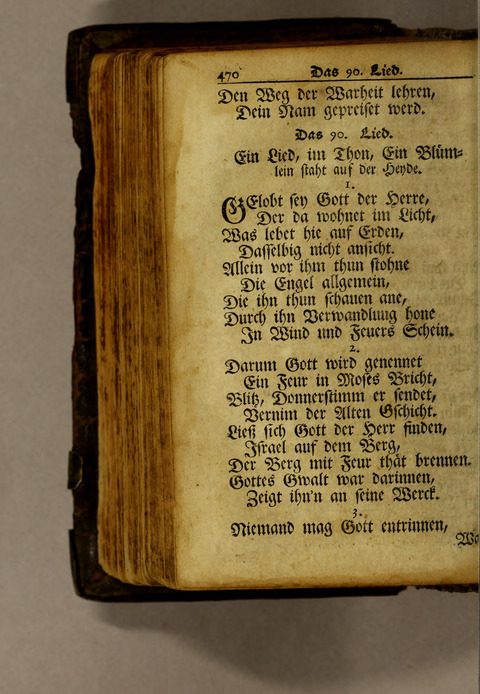 470 Das 90. Lied.
Den Weg der Warheit lehren,
Dein Nam gepreiset werd.
Das 90. Lied.
Ein Lied, im Thon, Ein Blüm⸗
lein staht auf der Heyde.
1.
GElobt sey Gott der Herre,
Der da wohnet im Licht,
Was lebet hie auf Erden,
Dasselbig nicht ansicht.
Allein vor ihm thun stohne
Die Engel allgemein,
Die ihn thun schauen ane,
Durch ihn Verwandlung hone
In Wind und Feuers Schein.
2.
Darum Gott wird genennet
Ein Feur in Moses Bricht,
Blitz, Donnerstimm er sendet,
Vernim der Alten Gschicht.
Ließ sich Gott der Herr finden,
Israel auf dem Berg,
Der Berg mit Feur thät brennen.
Gottes Gwalt war darinnen,
Zeigt ihn'n an seine Werck.
3.
Niemand mag Gott entrinnen,